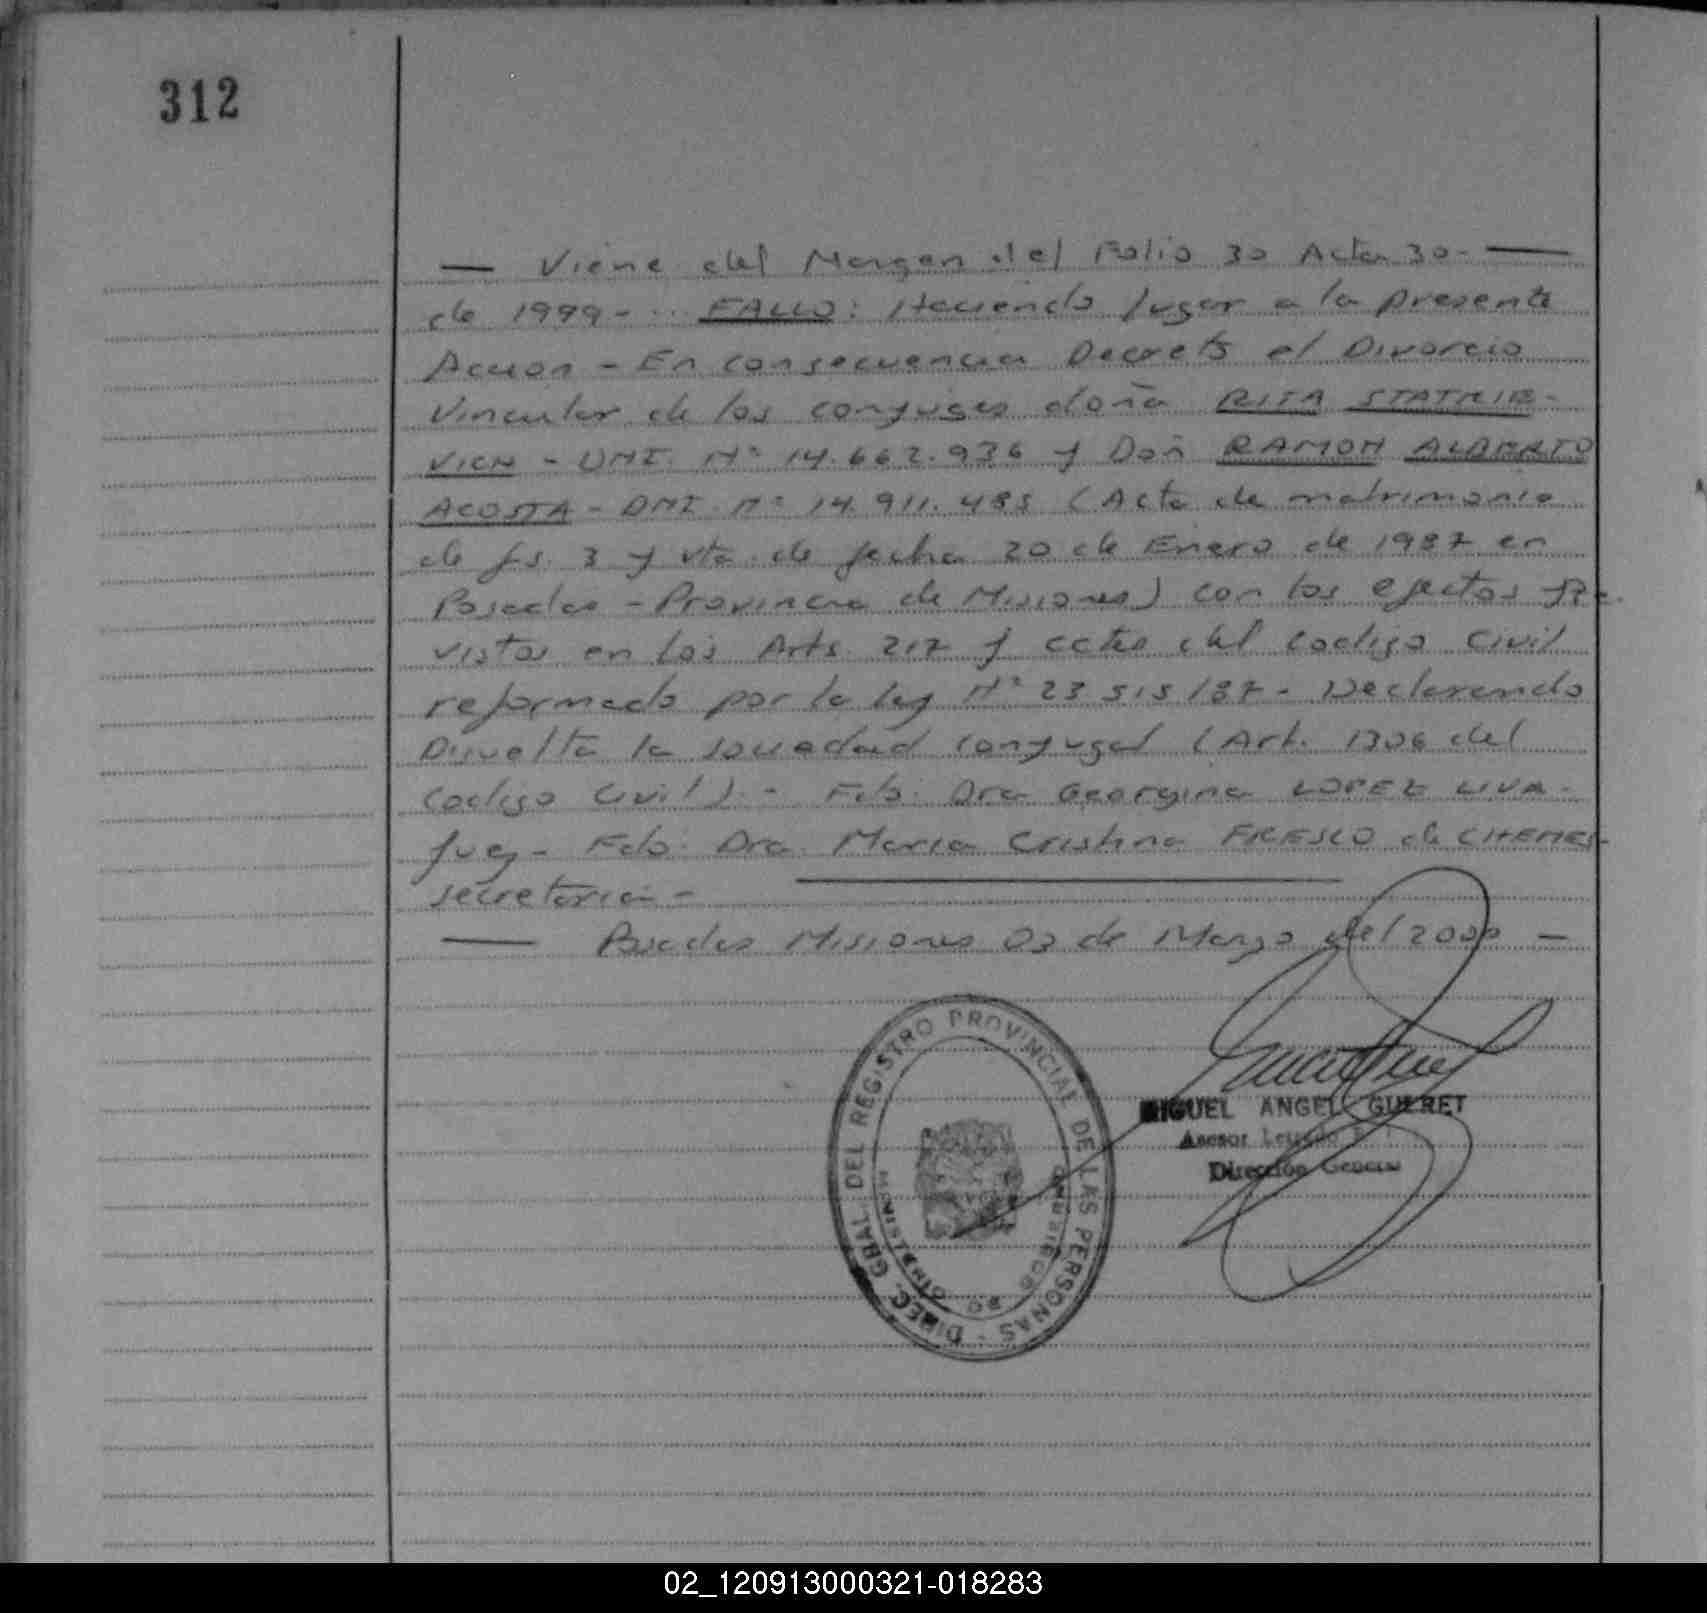 312
— Viene del Margen del Folio 30 Acta 30- —
de 1999- .. FALLO: Haciendo lugar a la presente
Accion - En consecuencia Decreto el Divorcio
Vincular de los conyuges doña RITA STATKIE-
VICH - DNI. Nº 14.662.936 y Don RAMON ALBERTO
ACOSTA - DNI. Nº 14.911.485 (Acta de matrimonio
de fs. 3 y vta. de fecha 20 de Enero de 1987 en
Posadas - Provincia de Misiones) con los efectos pre-
vistos en los Arts. 217 y cctes del Codigo Civil
reformado por la ley Nº 23.515/87- Declarando
Disuelta la sociedad conyugal (Art. 1306 del
Codigo Civil). - Fdo. Dra Georgina LOPEZ LIVA-
Juez- Fdo. Dra. Maria Cristina FRESCO de
secretaria -
— Posadas Misiones 03 de Marzo del 2000 —
DIREC. GRAL. DEL REGISTRO PROVINCIAL DE LAS PERSONAS -
MINISTERIO DE GOBIERNO
MIGUEL ANGEL GUERET
Asesor Letrado
Dirección General
02_120913000321-018283